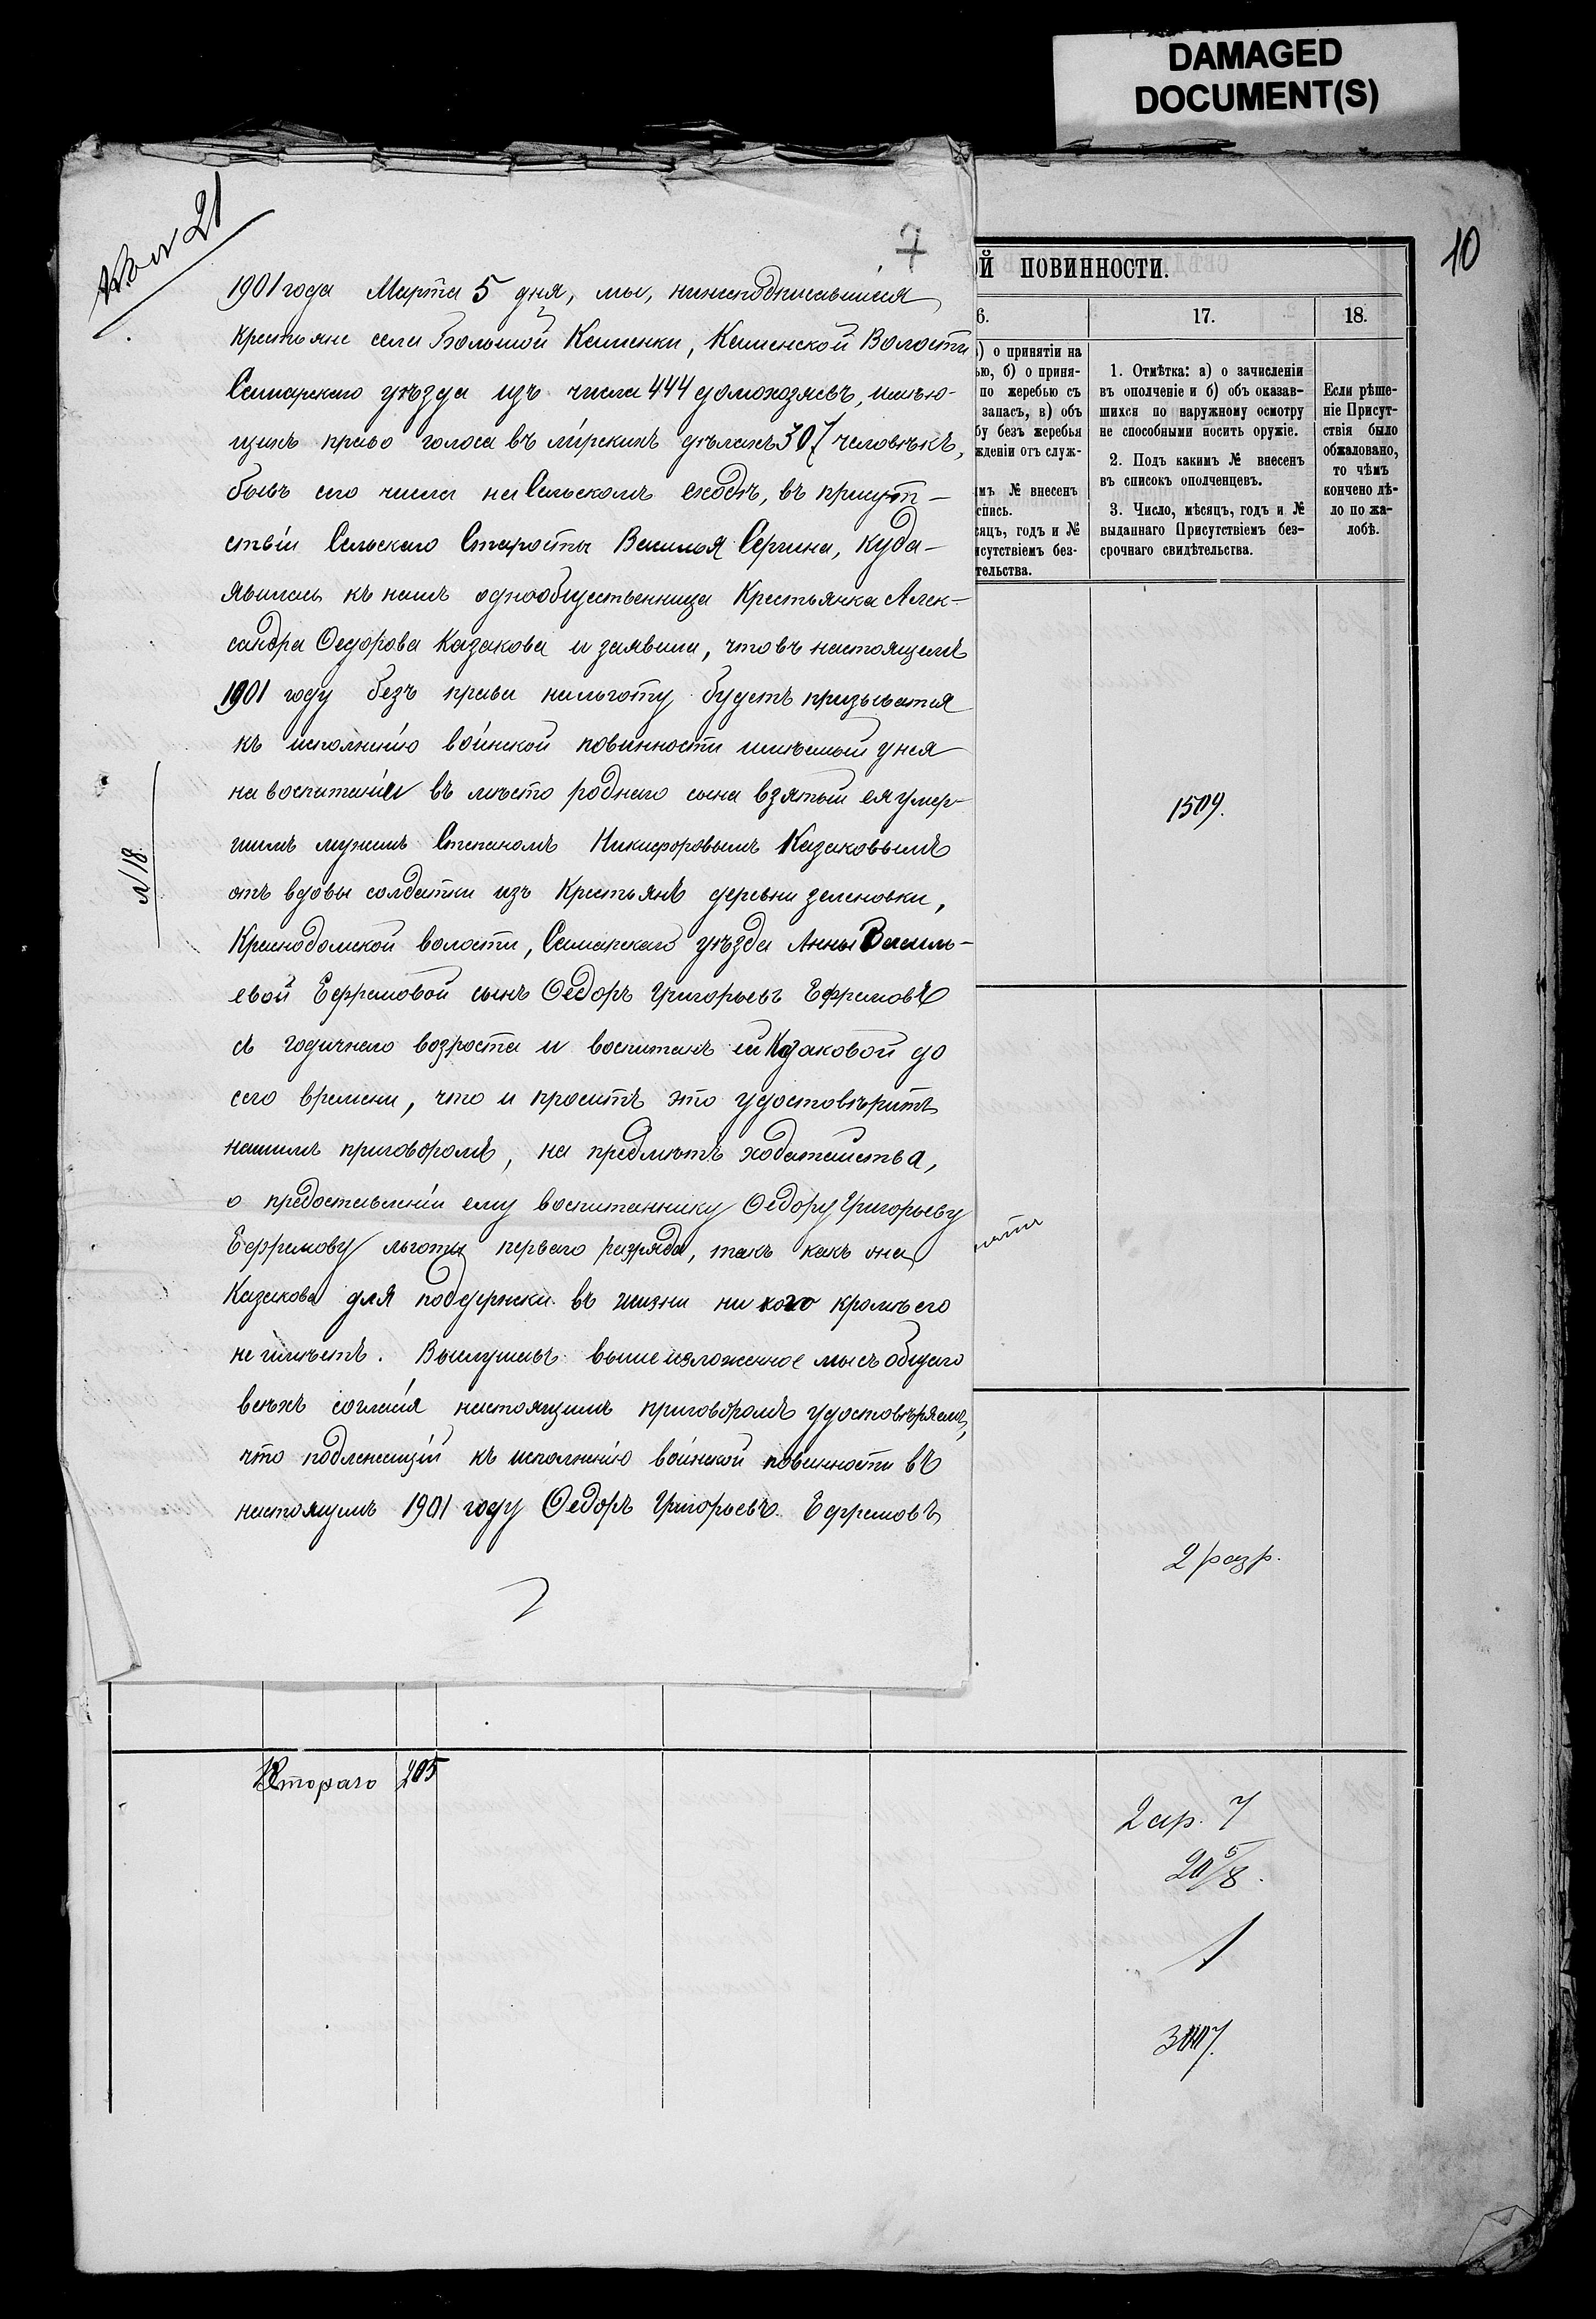 DAMAGED
DOCUMENT(S)
10
7
1901 года Марта 5 дня, мы, нижеподписавшиеся
крестьяне села Большой Каменки, Каменской Волости
Самарскаго уѣзда изъ числа 444 домохозяевъ, имѣю-
щихъ право голоса въ мірскихъ дѣлахъ 307 человѣкъ,
бывъ сего числа на Сельскомъ сходѣ, въ присут-
ствіи Сельскаго Старосты Василья Сергина, куда
явилась къ намъ однообщественница Крестьянка Алек-
сандра Ѳедорова Казакова и заявила, что въ настоящемъ
1901 году безъ права на льготу будетъ призыватся
къ исполнѣнію воинской повинности имѣемый у нея
на воспитаніи въ мѣсто роднаго сына взятый ея умер-
шимъ мужемъ Степаномъ Никифоровымъ Казаковымъ
отъ вдовы солдатки изъ Крестьянъ деревни зеленовки,
Краснодомской волости, Самарскаго уѣзда Анны Василь-
евой Ефремовой сынъ Ѳедоръ Григорьевъ Ефремовъ
съ годичнаго возроста и воспитанъ ей Казаковой до
сего времени, что и проситъ это удостовѣрить
нашимъ приговоромъ, на предмѣтъ ходатайства,
о предоставленіи ему воспитаннику Ѳедору Григорьеву
Ефремову льготы перваго разряда, такъ какъ она
Казакова для поддержки въ жизни ни кого кромѣ его
не имѣетъ. Выслушавъ выше изложенное мы съ общаго
всѣхъ согласія настоящимъ приговоромъ удостовѣряемъ,
что подлежащій къ исполнѣнію воинской повинности въ
настоящемъ 1901 году Ѳедоръ Григорьевъ Ефремовъ
№ 18.
ОЙ ПОВИННОСТИ.
6. 17. 18.
) о принятіи на
ью, б) о приня-
по жеребью съ
запасъ, в) объ
бу безъ жеребья
жденіи отъ служ-
мъ № внесенъ
спись.
сяцъ, годъ и №
исутствіемъ без-
тельства.
1. Отмѣтка: а) о зачисленіи
въ ополченіе и б) объ оказав-
шихся по наружному осмотру
не способными носить оружіе.
2. Подъ какимъ № внесенъ
въ списокъ ополченцевъ.
3. Число, мѣсяцъ, годъ и №
выданнаго Присутствіемъ без-
срочнаго свидѣтельства.
Если рѣше-
ніе Присут-
ствія было
обжаловано,
то чѣмъ
кончено дѣ-
ло по жа-
лобѣ.
1509.
2 разр.
Втораго 205
2 ар. 7
20 5/8.
1
3007.